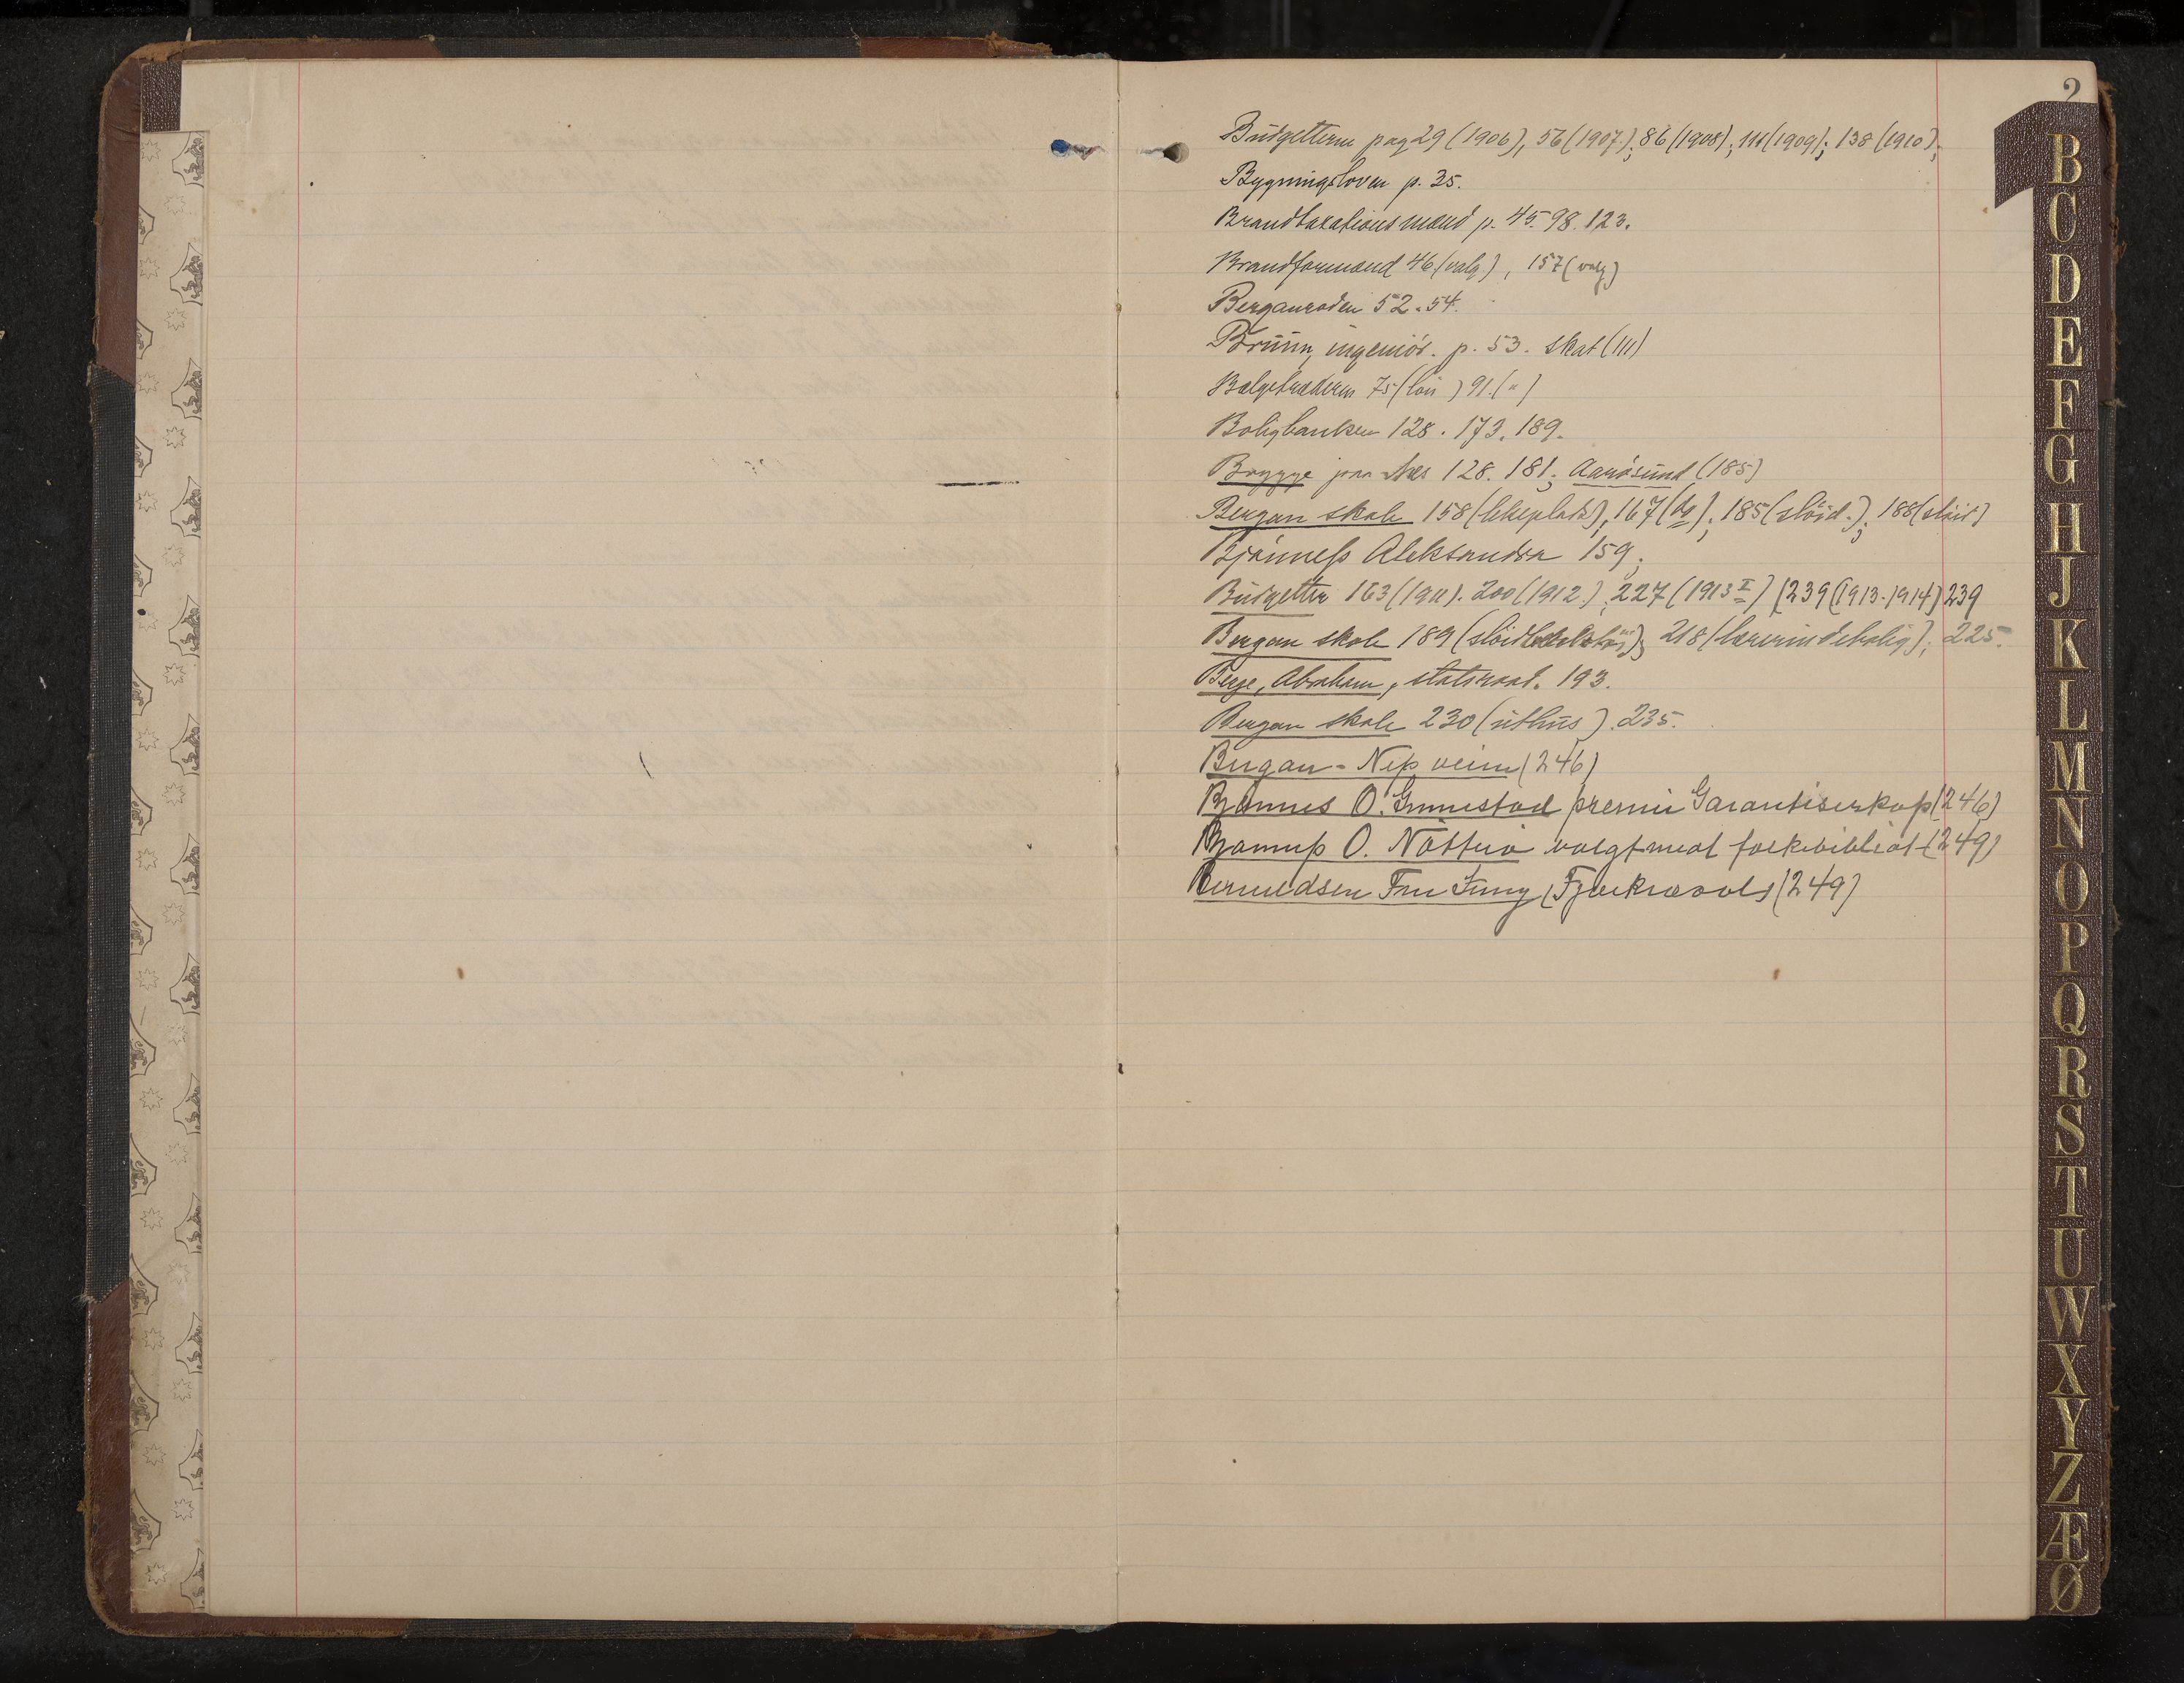 2
Budgetterne pag 29 (1906), 56 (1907); 86 (1908); 111 (1909); 138 (1910);
Bygningsloven p. 35.
Brandtaxationsmænd p. 45. 98. 123.
Brandformænd 46 (valg), 157 (valg)
Berganroden 52. 54.
Brüün, ingeniör. p. 53. skat (111)
Bælgetræderen 75 (lön) 91. (")
Boligbanken 128. 173. 189.
Brygge paa Næs 128. 181; Aarøsund (185)
Bergan skole 158 (lekeplads), 167 (do); 185 (slöid.); 188 (slöid)
Bjönness Aleksandra 159;
Budgetter 163 (1911). 200 (1912); 227 (1913 I) (239 (1913-1914) 239
Bergan skole 189 (slöid); 218 (lærerindebolig); 225.
Berge, Abraham, statsraad. 193.
Bergan skole 230 (uthus). 235.
Bergan - Ness veien (246)
Bjønnes O. Gunnestad premie Garantiserkap (246)
Bjønness O. Nøtterø valgt med folkebibliot (249)
Berntdsen Fru Funny (Fjærkreavls) (249)
B
C
D
E
F
G
H
J
K
L
M
N
O
P
Q
R
S
T
U
W
X
Y
Z
Æ
Ø